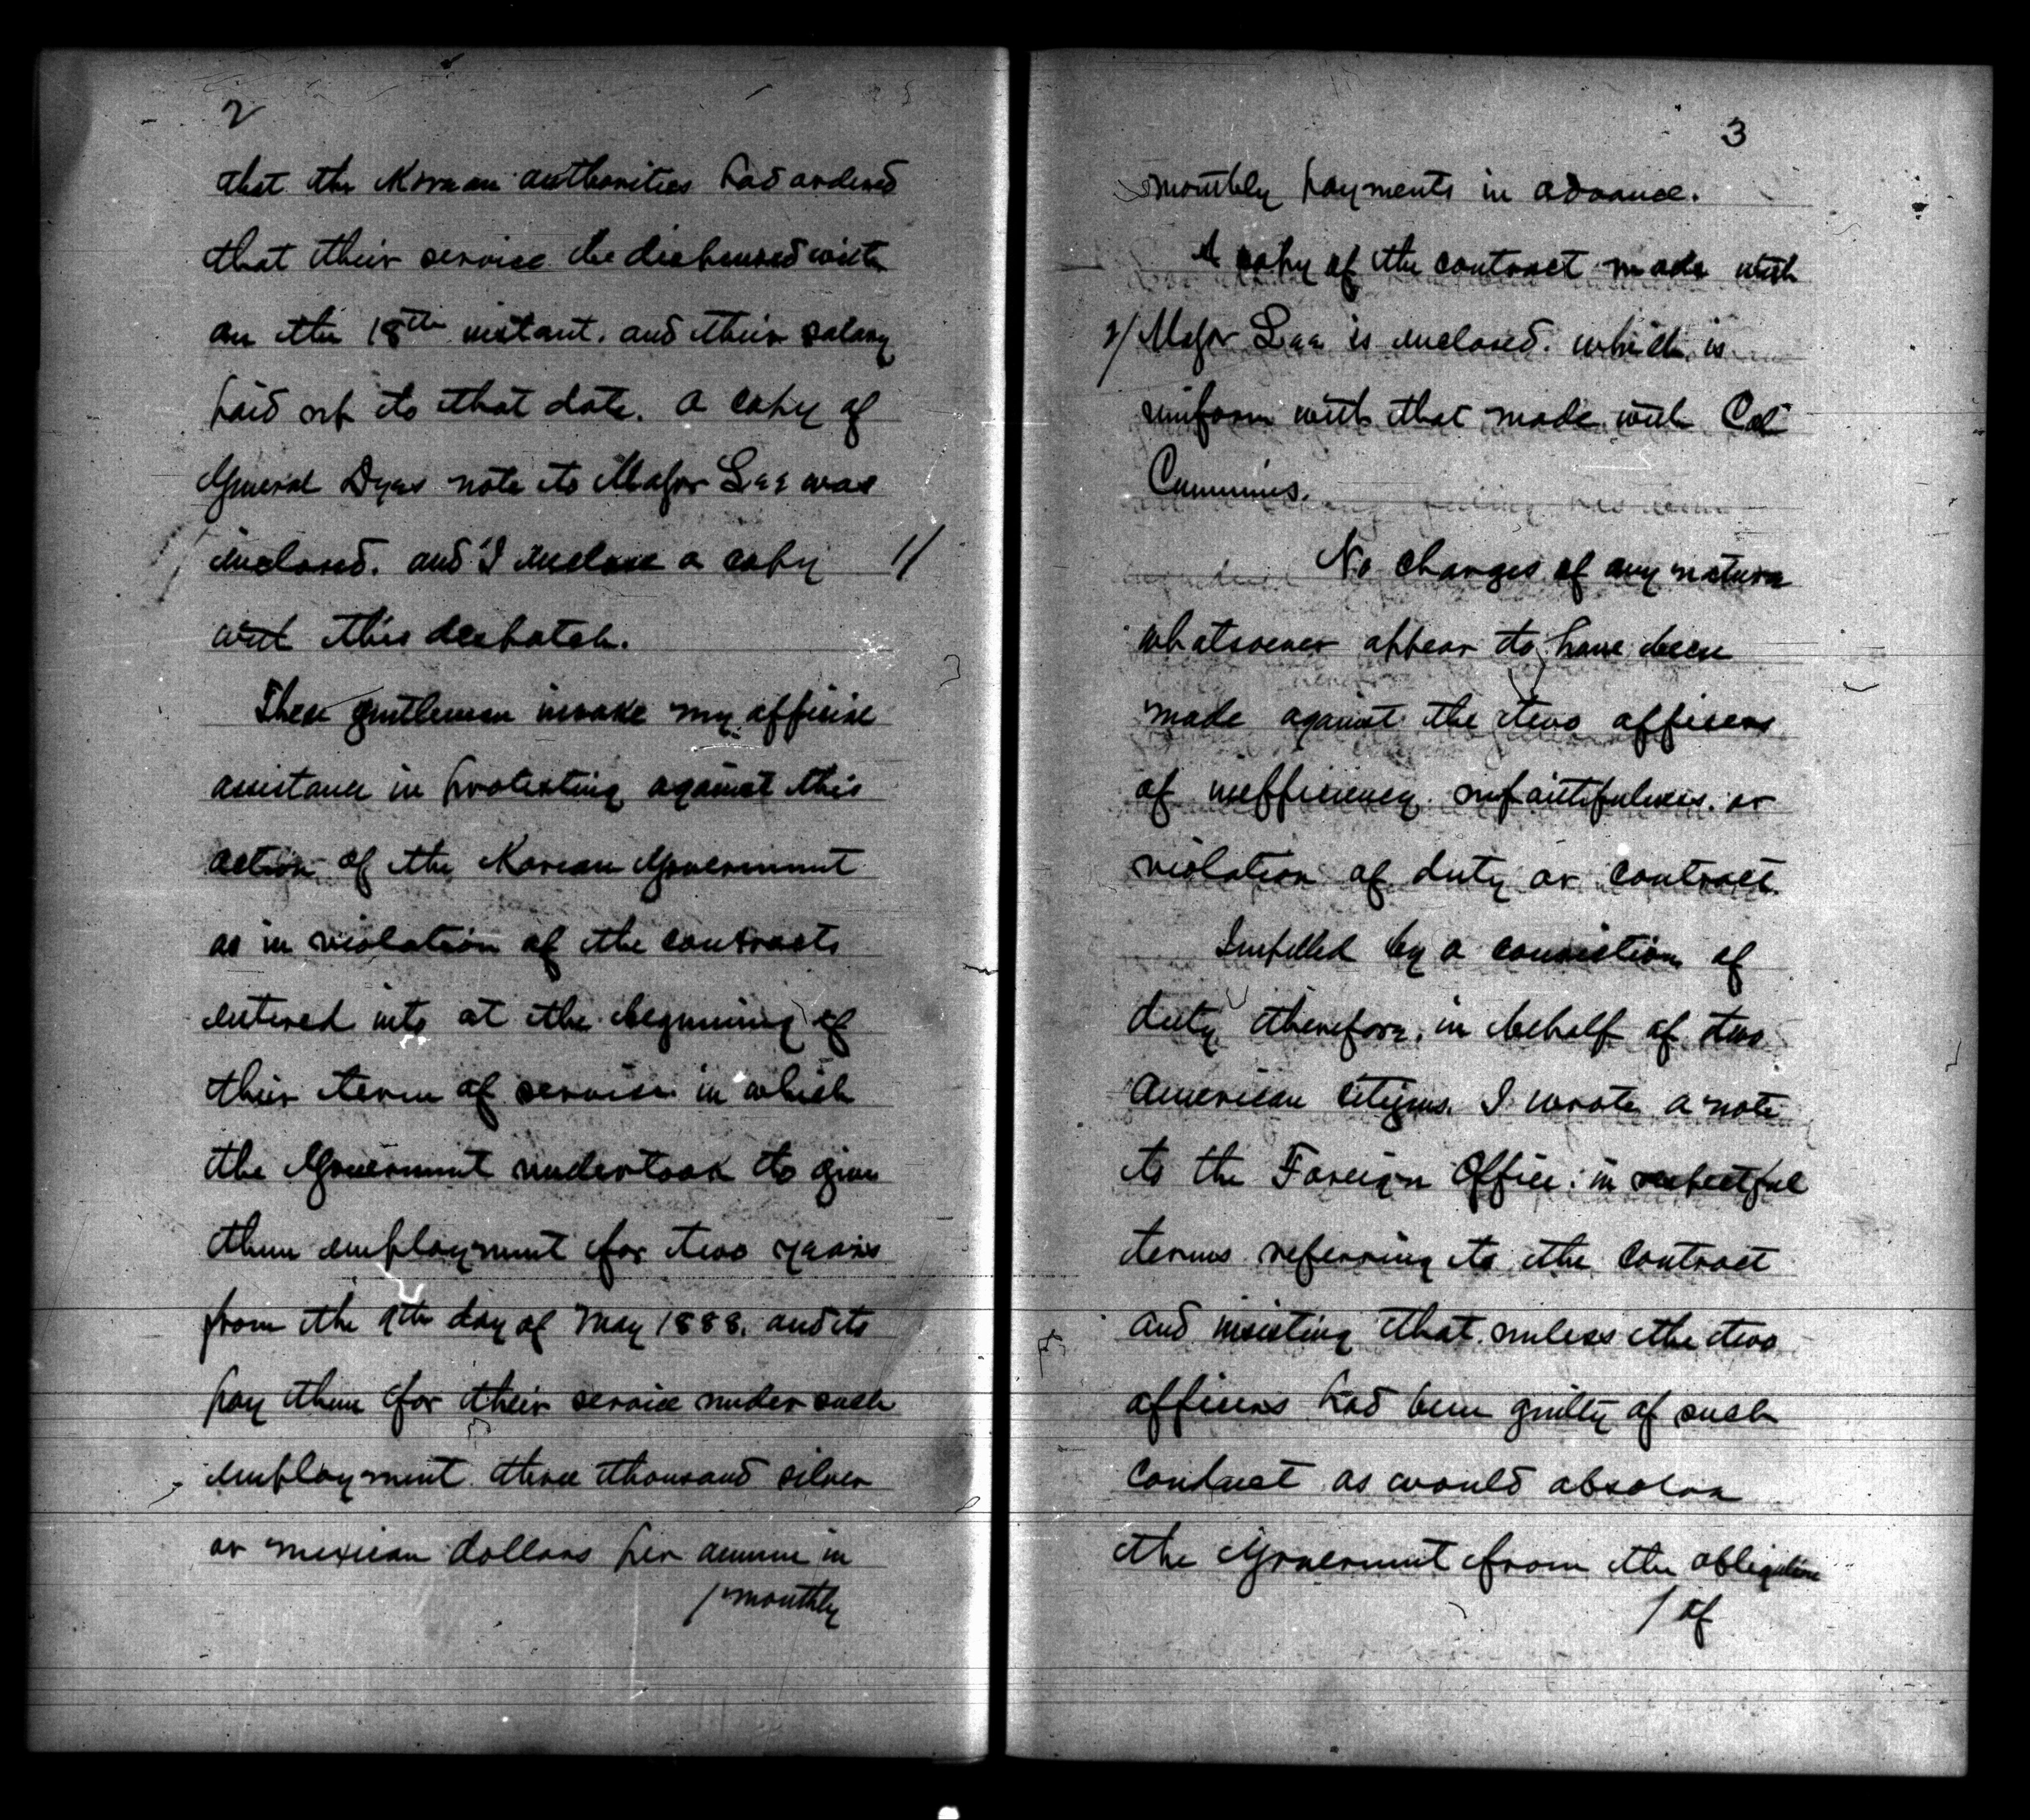 2
that the Korean authorities had ordered
that their service be dispensed with
on the 18th instant, and their salary
paid up to that date. A copy of
General Dyes note to Major Lee was
inclosed. and I inclose a copy 1/
with this despatch.
These gentlemen invoke my official
assistance in protesting against this
action of the Korean Government
as in violation of the contracts
entered into at the beginning of
their term of service in which
the Government undertook to give
them employment for two years
from the 9th day of May 1888, and to
pay them for their service under such
employment three thousand silver
or mexican dollars per annum in
/ monthly
3
monthly payments in advance.
A copy of the contract made with
2/ Major Lee is inclosed. which is
uniform with that made with Col
Cummins.
No charges of any nature
whatsoever appear to have been
made against the two officers
of inefficiency, unfaithfulness, or
violation of duty or contract.
Impelled by a conviction of
duty therefore, in behalf of two
American citizens, I wrote a note
to the Foreign Office: in respectful
terms referring to the contract
and insisting that unless the two
officers had been guilty of such
conduct as would absolve
the Government from the obligation
/ of